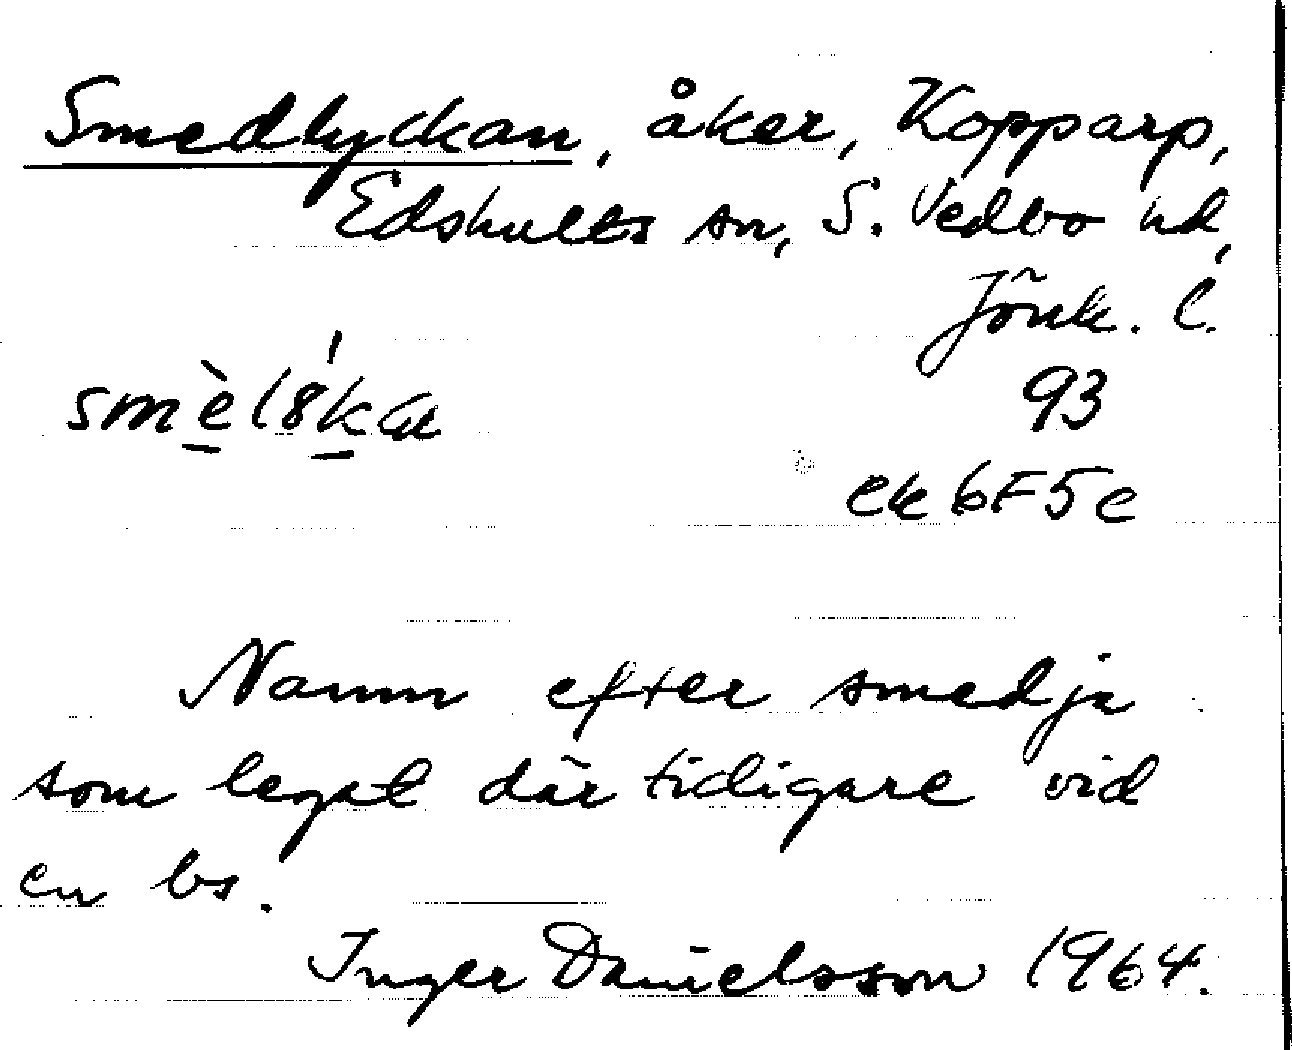 Smedlyckan, åker, Kopparp,
Edshults sn, S. Vedbo hd,
Jönk. l.
93
ek 6F5e
Namn efter smedja
som legat där tidigare vid
en bs.
Inger Danielsson 1964.